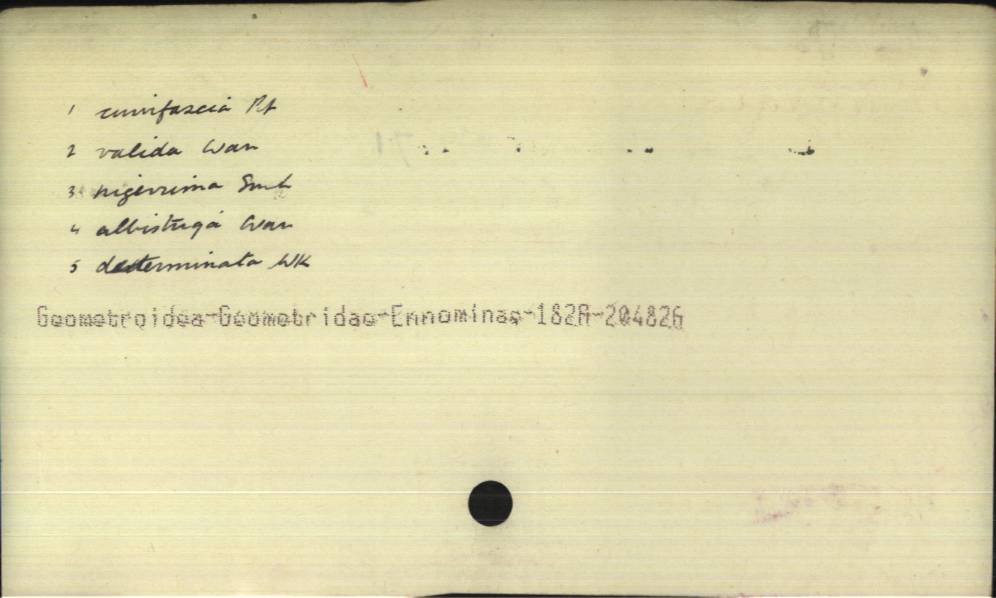 1 curvifascia Rt
2 valida War
3 nigerrima Swh
4 albistriga War
5 determinata Wk
Geometroidea-Geometridae-Ennominae-182A-204826